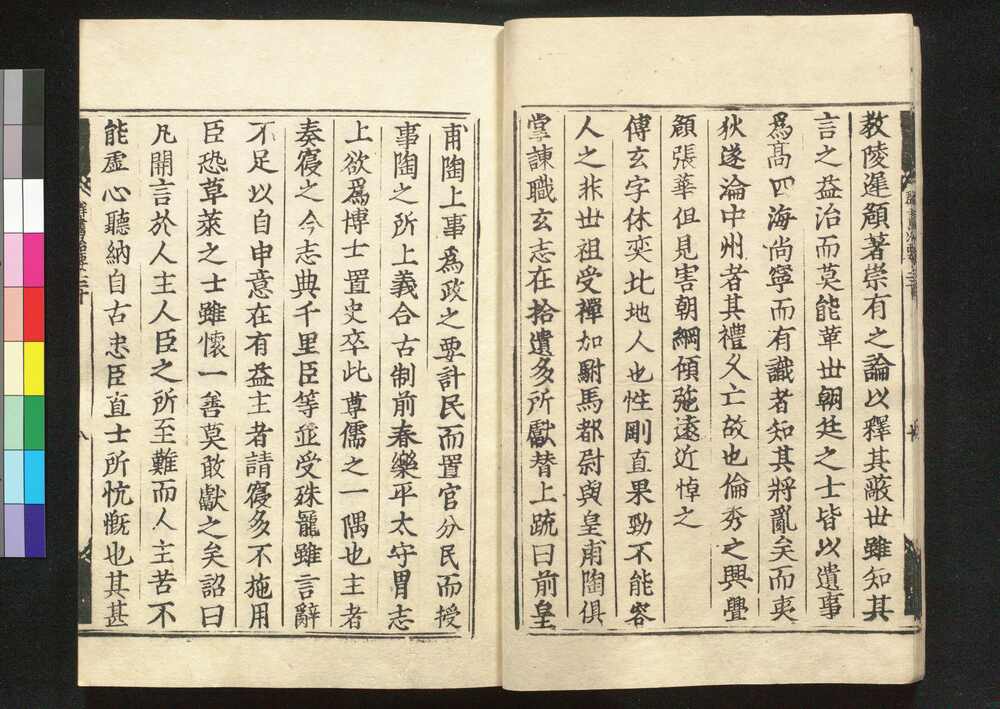 教陵遲頠著崇有之論以釋其蔽世雖知其
言之益治而莫能革也朝廷之士皆以遺事
爲高四海尚寧而有識者知其將亂矣而夷
狄遂淪中州者其禮久亡故也倫秀之興釁
頠張華但見害朝綱傾弛遠近悼之
傅玄字休奕北地人也性剛直果勁不能容
人之非世祖受禪加駙馬都尉與皇甫陶俱
掌諫職玄志在拾遺多所獻替上疏曰前皇
甫陶上事爲政之要計民而置官分民而授
事陶之所上義合古制前春樂平太守胄志
上欲爲博士置史卒此尊儒之一隅也主者
奏寑之今志典千里臣等並受殊寵雖言辭
不足以自申意在有益主者請寑多不施用
臣恐草萊之士雖懷一善莫敢獻之矣詔曰
凡開言於人主人臣之所至難而人主苦不
能虛心聽納自古忠臣直士所忼慨也其甚